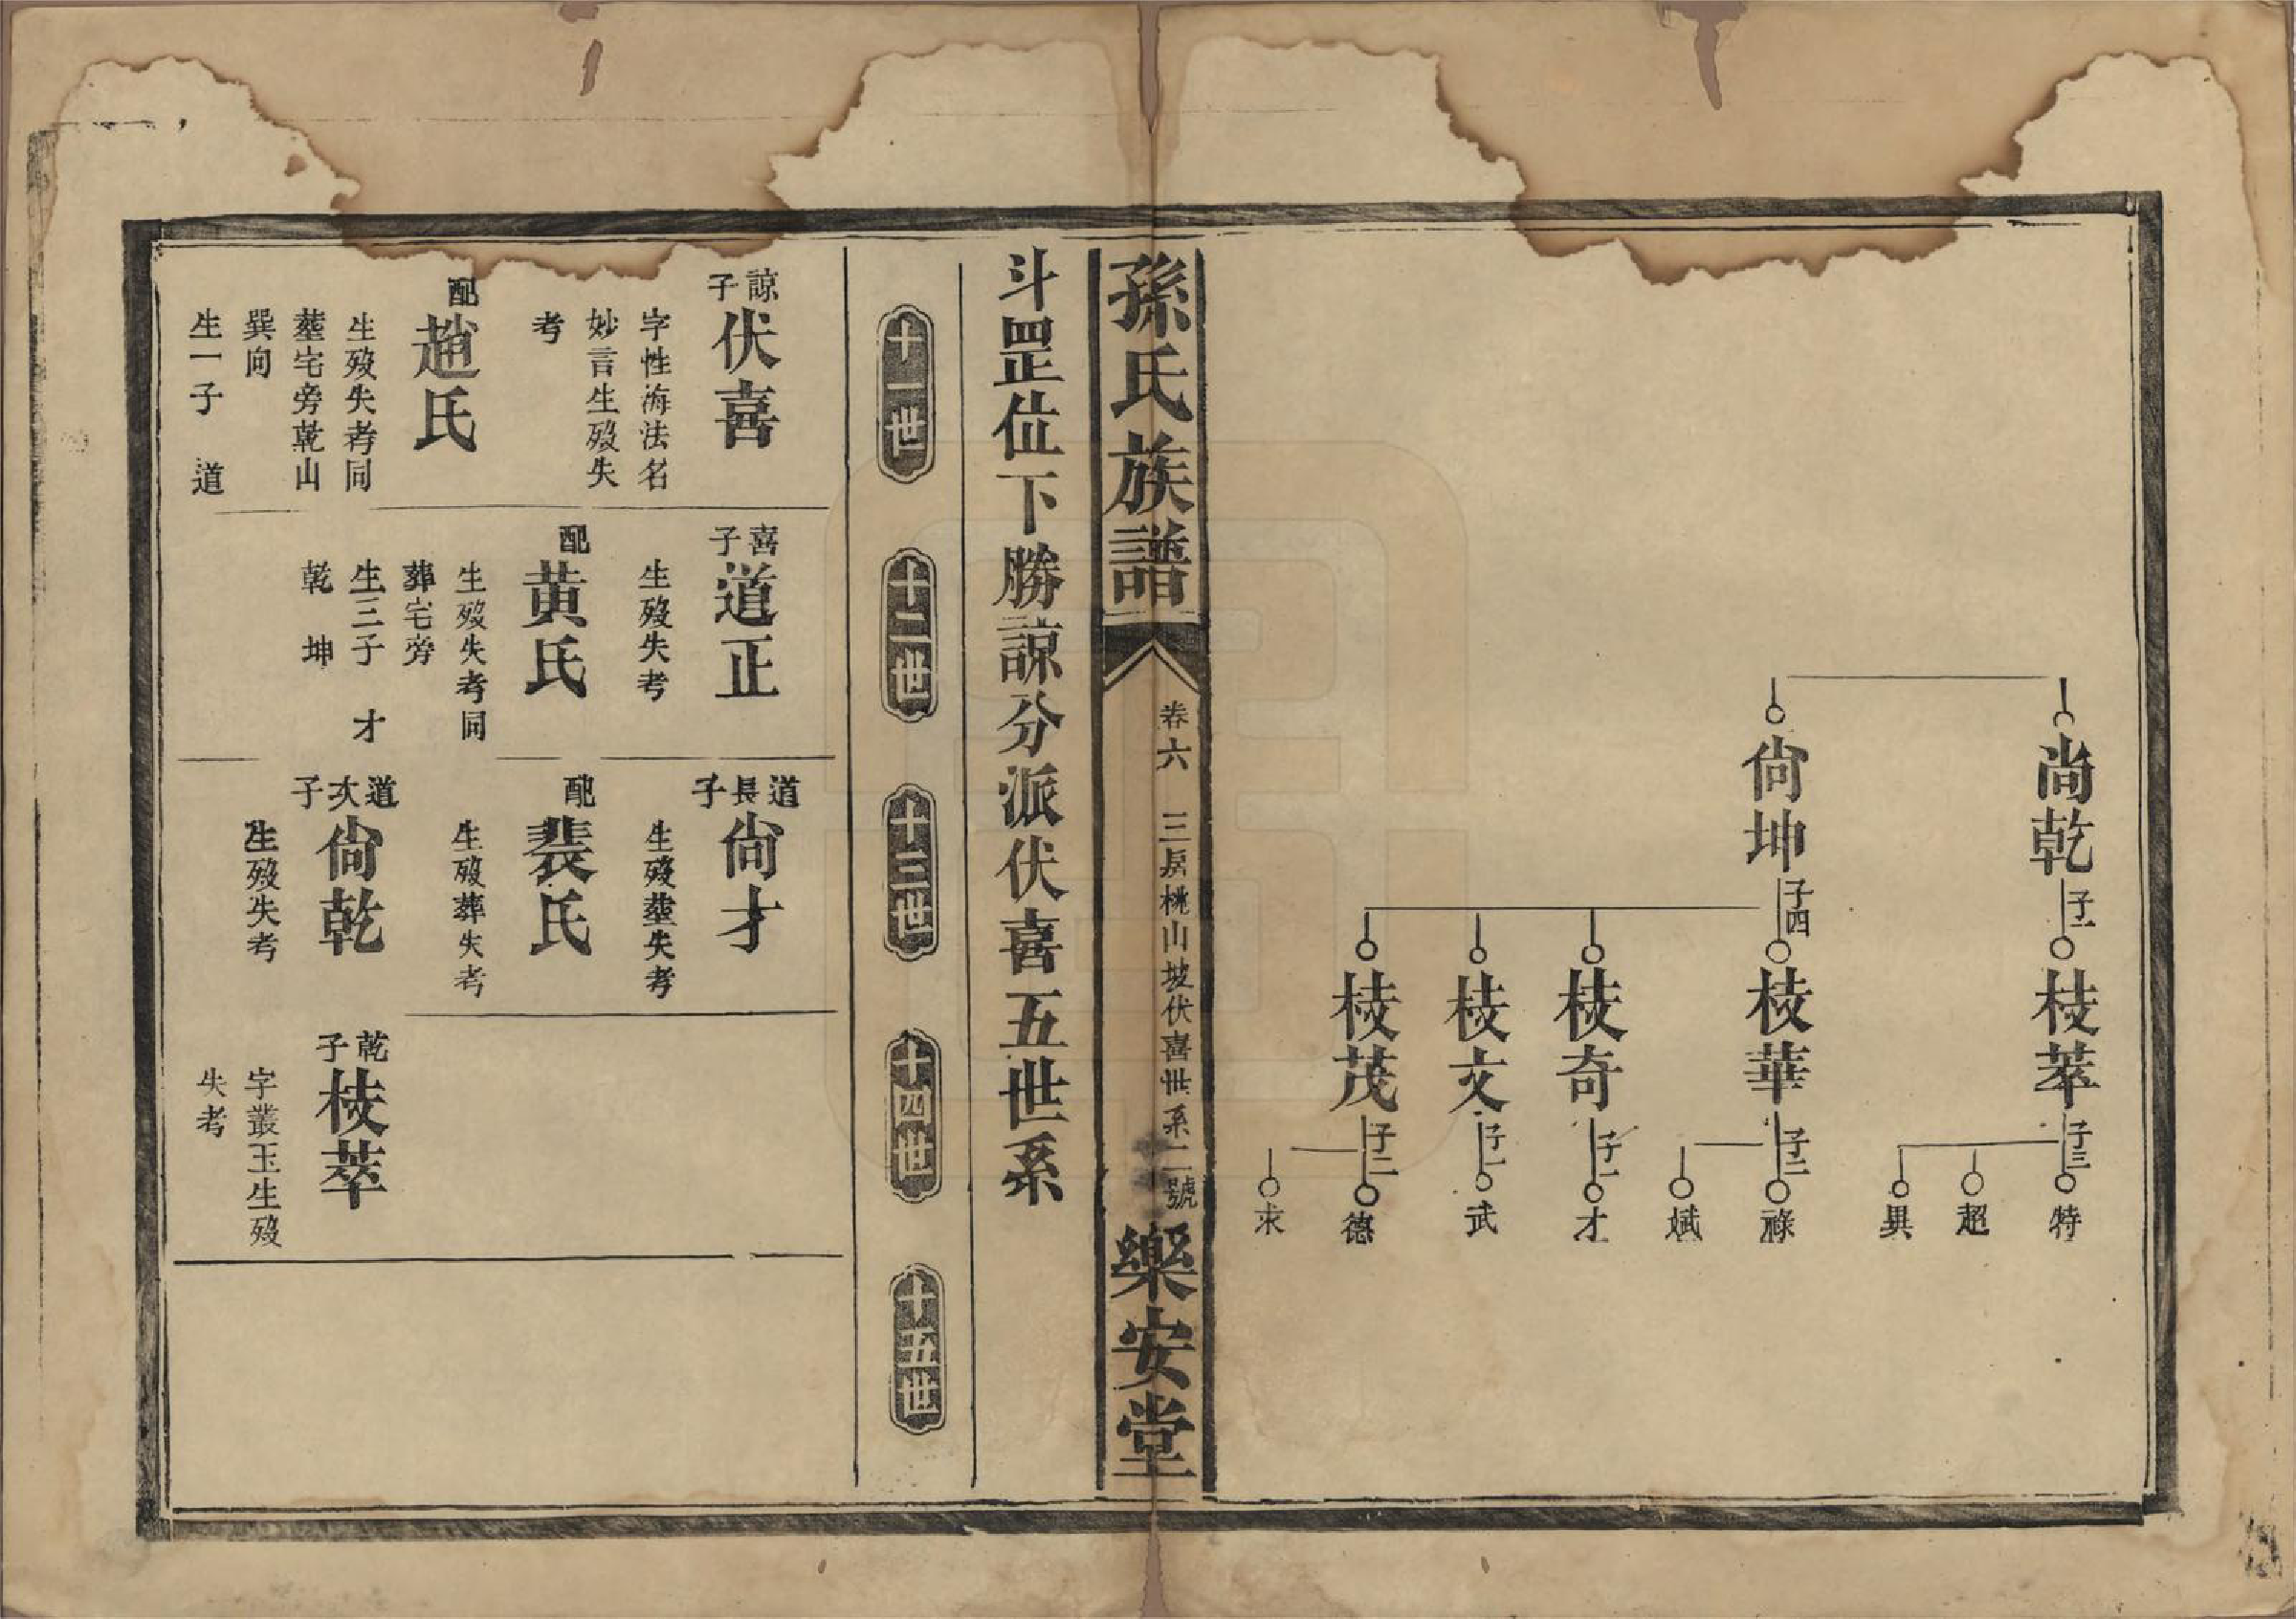 尚乾
子一
枝萃
子三
特
超
異
尙坤
子四
枝華
子二
祿
斌
枝奇
子一
才
枝文
子一
武
枝茂
子二
德
求
孫氏族譜
卷六
三房桃山坡伏喜世系二號
樂安堂
斗罡位下勝諒分派伏喜五世系
十一世
十二世
十三世
十四世
十五世
諒子
伏喜
字性海法名
妙言生歿失
考
配
趙氏
生歿失考同
塟宅旁乾山
巽向
生一子 道
喜子
道正
生歿失考
配
黄氏
生歿失考同
葬宅旁
生三子 才
乾 坤
道長子
尙才
生歿塟失考
配
裴氏
生歿葬失考
道次子
尙乾
生歿失考
乾子
枝萃
字叢玉生歿
失考